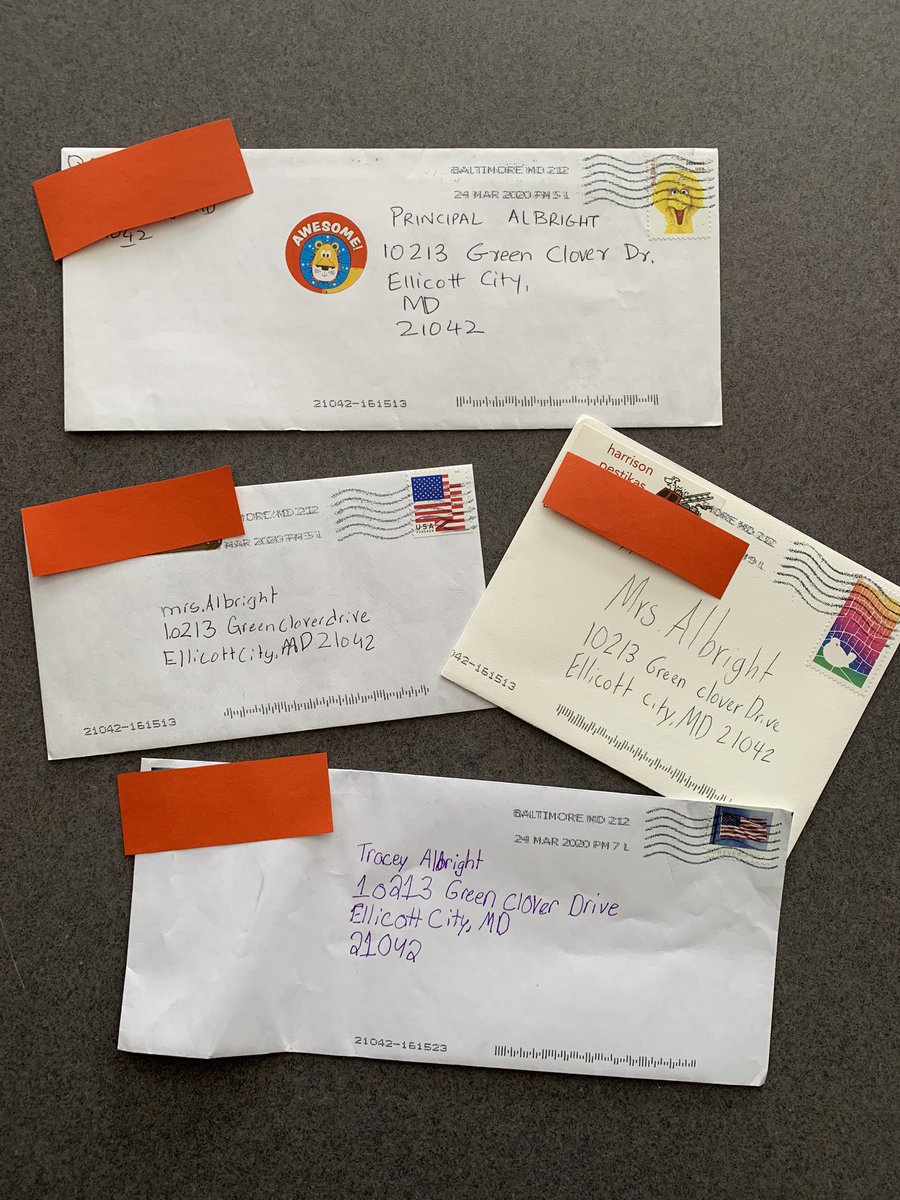 BALTIMORE MD 212
24 MAR 2020 PM 3 L
MD
42
AWESOME!
PRINCIPAL ALBRIGHT
10213 Green Clover Dr.
Ellicott City,
MD
21042
21042-161513
ORE MD 212
MAR 2020 PM 3 L
USA
FOREVER
mrs. Albright
10213 Green Clover drive
Ellicott City, MD 21042
21042-161513
harrison
pestikas
ORE MD 212
Mrs. Albright
10213 Green Clover Drive
Ellicott City, MD 21042
042-161513
BALTIMORE MD 212
24 MAR 2020 PM 7 L
Tracey Albright
10213 Green Clover Drive
Ellicott City, MD
21042
21042-161523